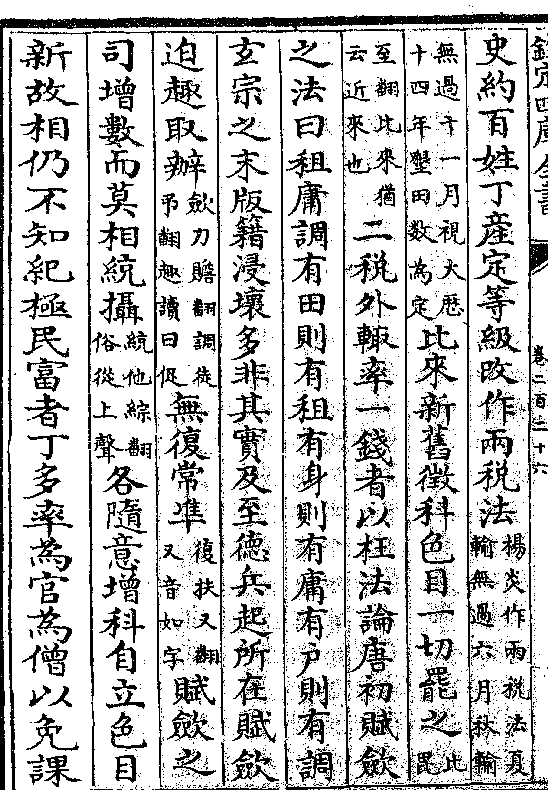 欽定四庫全書
卷二百二十六
史約百姓丁產定等級改作兩税法楊炎作兩税法夏輸無過六月秋輸
無過十一月視大厯十四年墾田数為定比來新舊徵科色目一切罷之比毘
至翻比來猶云近來也二税外輙率一錢者以枉法論唐初賦斂
之法曰租庸調有田則有租有身則有庸有户則有調
玄宗之末版籍浸壞多非其實及至德兵起所在賦斂
迫趣取辦斂力贍翻調徒弔翻趣讀曰促無復常凖復扶又翻又音如字賦斂之
司增數而莫相統攝統他綜翻俗從上聲各隨意增科自立色目
新故相仍不知紀極民富者丁多率為官為僧以免課